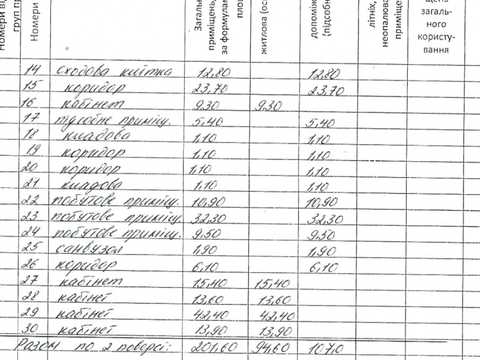 Номери
груп пр
Номери
Загаль
приміщень,
за формулам
пло
житлова (ос
допоміж
(підсобн
літніх,
неопалюв
приміще
щень
загаль-
ного
користу-
вання
14 сходова клітка 12,80 12,80
15 коридор 23,70 23,70
16 кабінет 9,30 9,30
17 приміщ. 5,40 5,40
18 кладова 1,10 1,10
19 коридор 1,10 1,10
20 коридор 1,10 1,10
21 кладова 1,10 1,10
22 побутове приміщ. 10,90 10,90
23 побутове приміщ. 32,30 32,30
24 побутове приміщ. 9,50
25 санвузол 1,90 1,90
26 коридор 6,10 6,10
27 кабінет 15,40 15,40
28 кабінет 13,60 13,60
29 кабінет 42,40 42,40
30 кабінет 13,90 13,90
Разом по 2 поверсі: 201,60 94,60 107,0